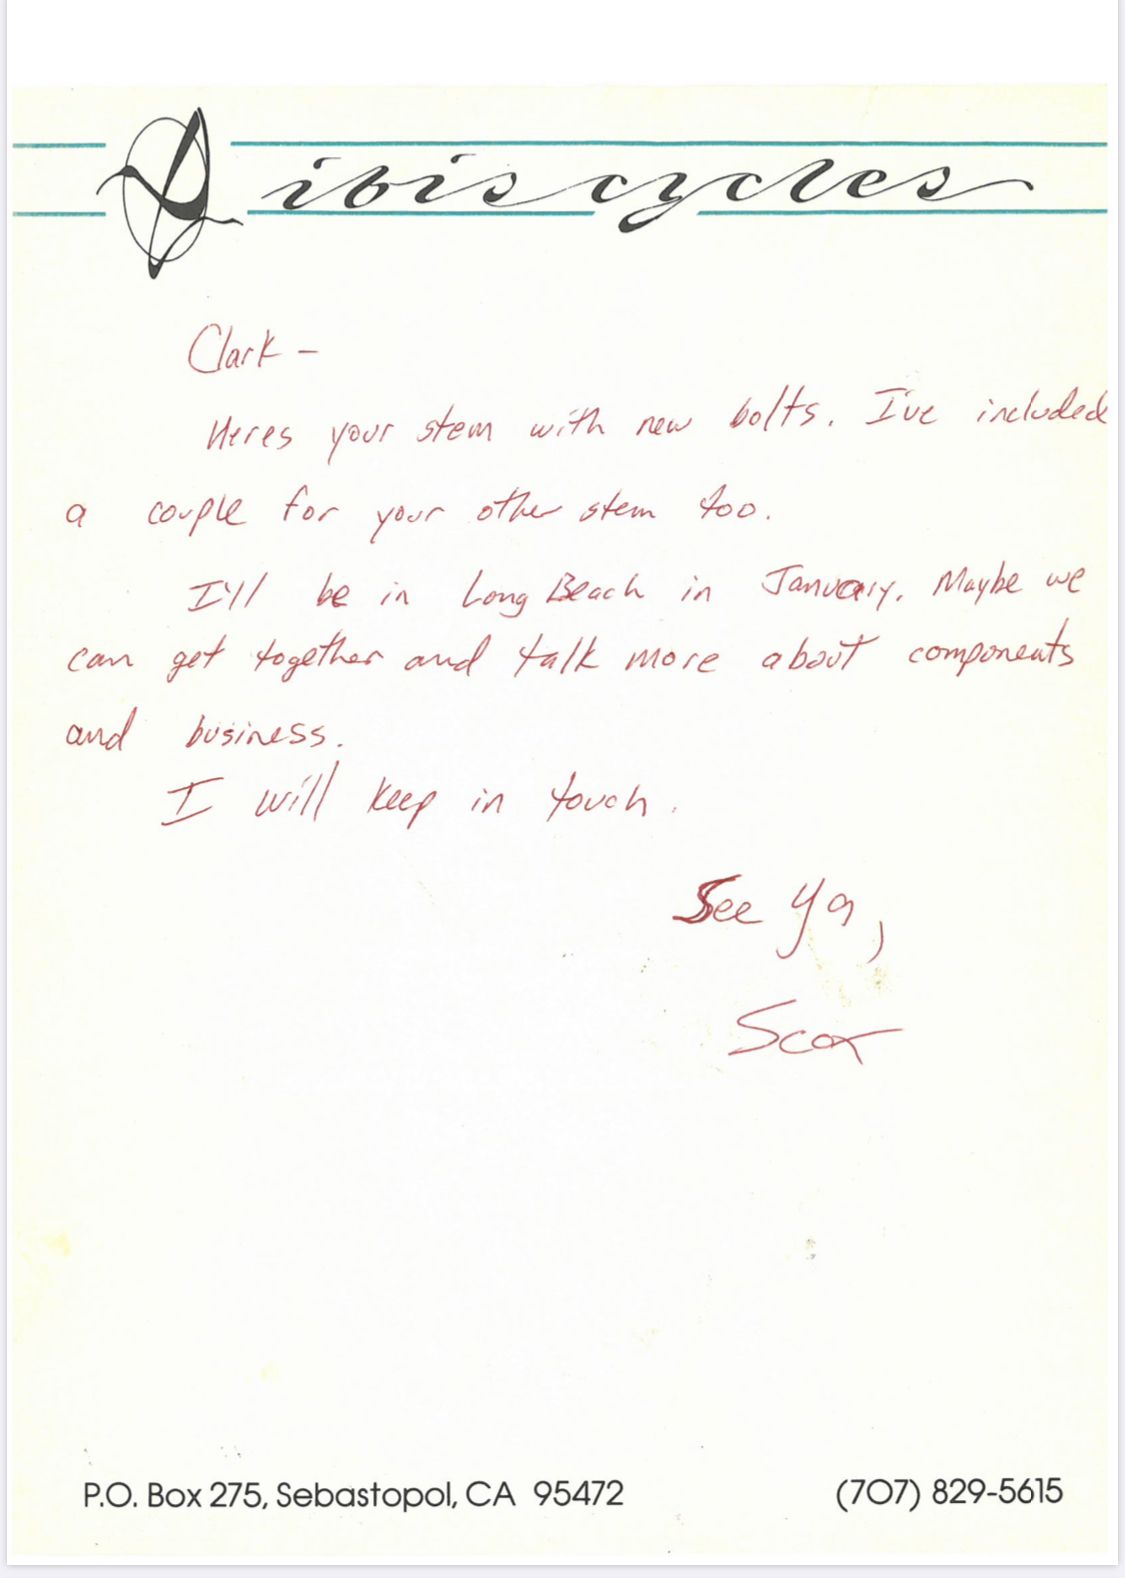 ibis cycles
Clark –
Heres your stem with new bolts. I've included
a couple for your other stem too.
I'll be in Long Beach in January. Maybe we
can get together and talk more about components
and business.
I will keep in touch.
See ya,
Scot
P.O. Box 275, Sebastopol, CA 95472
(707) 829-5615